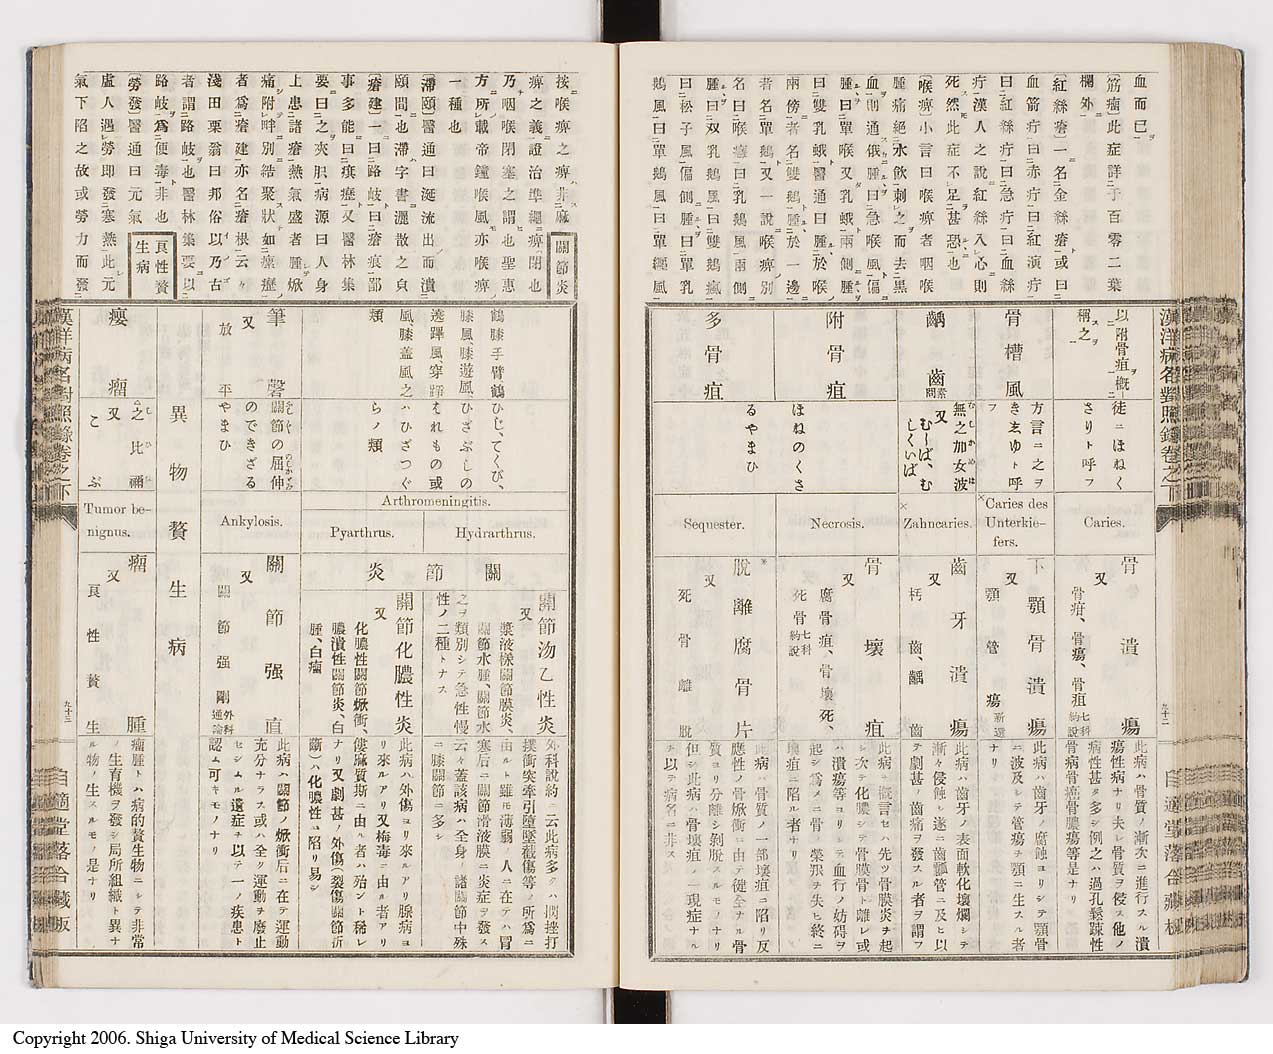 血而已
(筋瘤)此症詳于百零二葉
欄外
紅絲瘡一名金絲瘡ト或曰
血箭疔曰赤疔曰紅演疔
曰紅絲疔曰急疔曰血絲
疔漢人之說紅絲入心則
死然此症不足甚恐也
(喉痺)小言曰喉痺者咽喉
腫痛絕水飲刺之而去黑
血則通俄腫曰急喉風偏
腫曰單乳蛾兩側腫
曰雙乳蛾醫通曰腫於喉
兩傍者名雙鵝腫於一邊
者名單鵝又一說喉痺別
名曰喉癰曰乳鵝風兩側
腫曰双乳鵝風曰雙鵝瘋
曰松子風偏側腫曰單乳
鵝風曰單鵝風曰單纏風
漢洋病名對照錄卷之下
九十二
自適堂落合藏板
以附骨疽概
稱之
徒ニほねく
さりト呼フ
Caries.
骨潰瘍
又
骨疽、骨瘍、骨疽
七科約說
此病ハ骨質ノ漸次ニ進行スル潰
瘍性病ナリ夫レ骨質ヲ侵ス他ノ
病性甚タ多シ例之ハ過孔鬆疎性
骨病骨癌骨膿瘍等是ナリ
骨槽風
方言ニ之ヲ
きゑゆト呼
フ
Caries des Unterkiefers.
下顎骨潰瘍
又
顎管瘍
新選
此病ハ齒牙ノ腐蝕ヨリシテ顎骨
ニ波及シテ管瘍ヲ顎ニ生スル者
ナリ
齲齒
素問
無之加女波
又
むしば、む
しくいば
Zahncaries.
齒牙潰瘍
又
朽齒、齲齒
此病ハ齒牙ノ表面軟化壞爛シテ
漸々侵蝕シ遂ニ齒髓管ニ及ヒ以
テ劇甚ノ齒痛ヲ發スル者ヲ謂フ
附骨疽
ほねのくさ
Necrosis.
骨壞疽
又
腐骨疽、骨壞死、
死骨
七科約說
此病ニ概言セハ先ツ骨膜炎ヲ起
シ次テ化膿シテ骨膜骨ト離レ或
ハ潰瘍等ヨリシテ血行ノ妨碍ヲ
起シ爲メニ骨ノ榮養ヲ失ヒ終ニ
壞疽ニ陷ル者ナリ
多骨疽
るやまひ
Sequester.
脫離腐骨片
又
死骨離脫
此病ハ骨質ノ一部壞疽ニ陷リ反
應性ノ骨焮衝ニ由テ健全ナル骨
質ヨリ分離シ剝脫スルモノナリ
但シ此病ハ骨壞疽ノ一現症ナル
ヲ以テ病名ニ非ス
按喉痺之痺非麻
痺之義證治準繩曰痺閉也
乃咽喉閉塞之謂也聖惠
方所載帝鐘喉風亦喉痺
一種也
(滯頤)醫通曰涎流出而漬
頤間也滯字書灑散之皃
(瘡建)一曰路岐曰瘡痕部
事多能曰㾗癧又醫林集
要曰之夾𦙄病源曰人身
上患諸瘡熱氣盛者腫焮
痛附畔別結聚狀如瘰癧
者爲瘡建亦名瘡根云々
淺田栗翁曰邦俗以乃古
者謂路岐也醫林集要以
路岐爲便毒非也
(勞發)醫通曰元氣
虛人過勞即發寒熱此元
氣下陷之故或勞力而發
關節炎
良性贅生病
鶴膝手臂鶴
膝風、膝遊風、
遶踝風、穿踭
風膝蓋風之
類
ひじ、てくび、
ひざぶしの
はれもの或
ハひざつぐ
らノ類
Arthromeningitis.
Hydrarthrus.
Pyarthrus.
關節炎
關節沕乙性炎
又
漿液樣關節膜炎、
關節水腫、關節水
之ヲ類別シテ急性慢
性ノ二種トナス
外科說約ニ云此病多クハ捫挫打
撲衝突牽引墮墜截傷等ノ所爲ニ
由ルト雖モ薄弱ノ人ニ在テハ冒
寒后ニ關節滑液膜ニ炎症ヲ發ス
云々蓋該病ハ全身ノ諸關節中殊
ニ膝關節ニ多シ
關節化膿性炎
又
化膿性關節焮衝、
膿潰性關節炎、白
腫、白瘤
此病ハ外傷ヨリ來ルアリ腺病ヨ
リ來ルアリ又梅毒ニ由ル者アリ
僂麻質斯ニ由ル者ハ殆ント稀レ
ナリ又劇甚ノ外傷(裂傷關節折
斷)ハ化膿性ニ陷リ易シ
筆磬
又
放平
關節の屈伸
のできざる
やまひ
Ankylosis.
關節强直
又
關節强剛
外科通論
此病ハ關節ノ焮衝后ニ在テ運動
充分ナラス或ハ全ク運動ヲ廢止
セシムル遺症ヲ以テ一ノ疾患ト
認ム可キモノナリ
異物贅生病
癭瘤
之比禰
又
こぶ
Tumor benignus.
瘤腫
又
良性贅生
瘤腫トハ病的贅生物ニシテ非常
ノ生育機ヲ發シ局所組織ト異ナ
ル物ノ生スルモノ是ナリ
漢洋病名對照錄卷之下
九十三
自適堂落合藏板
Copyright 2006. Shiga University of Medical Science Library